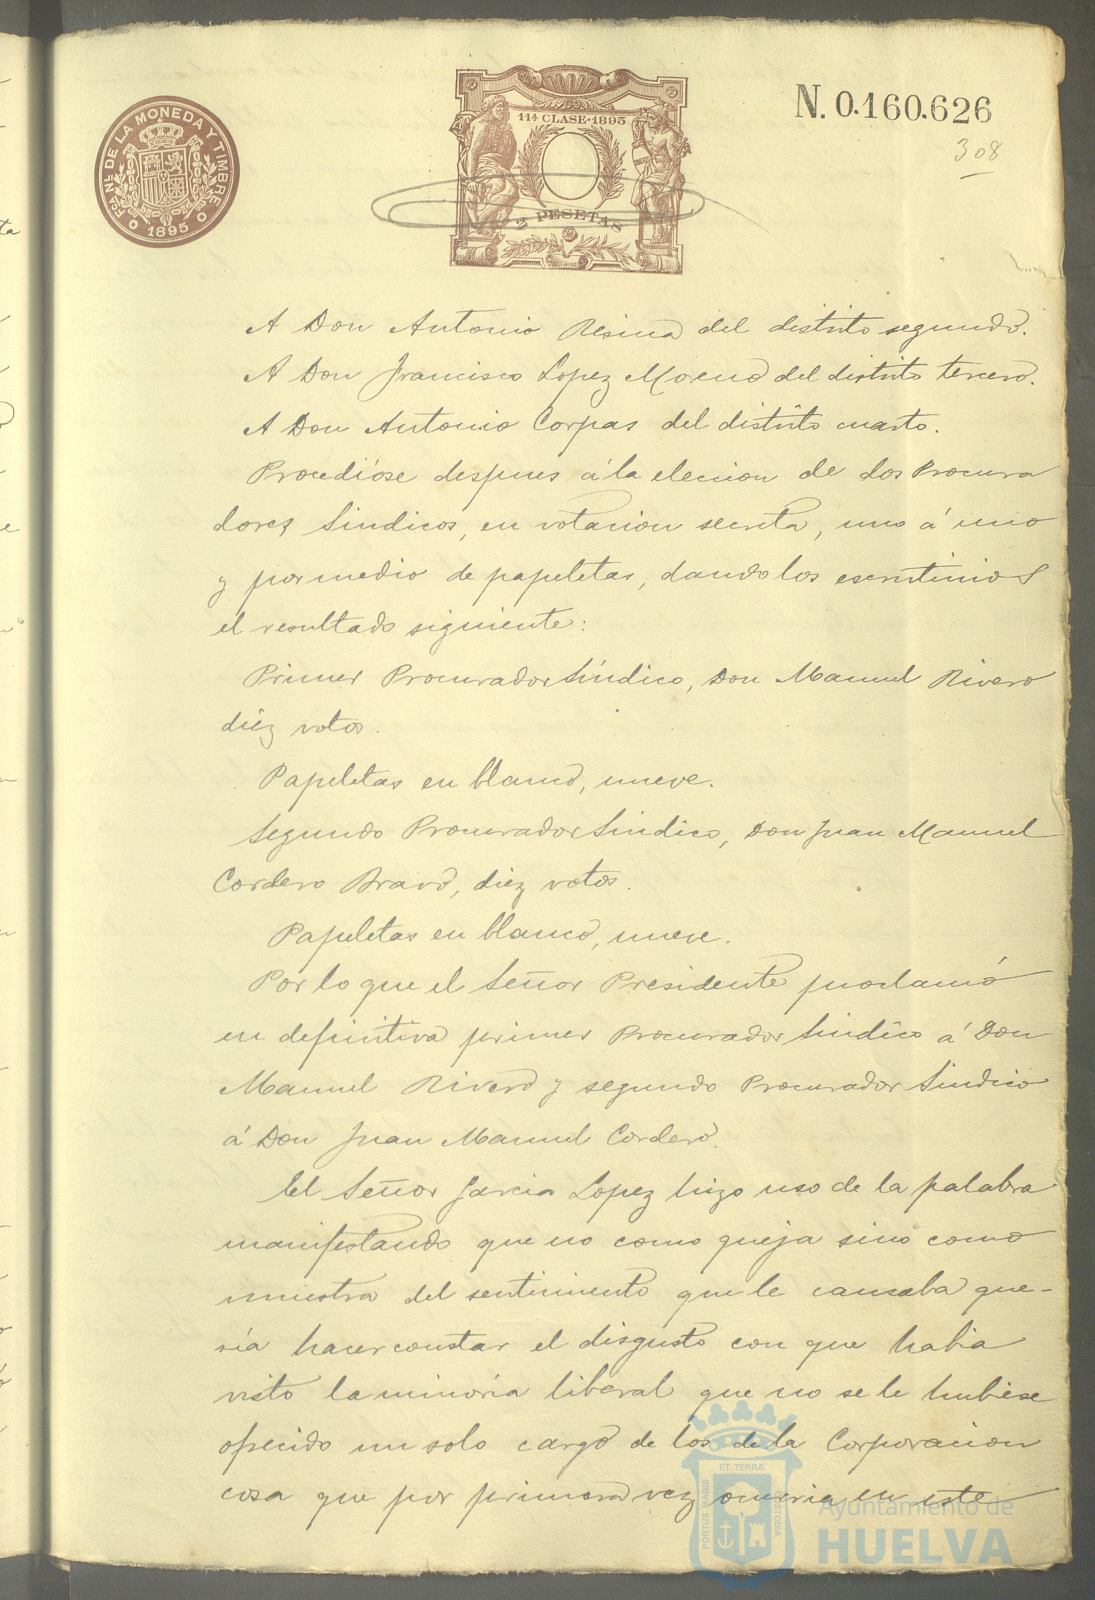 FCA. NL. DE LA MONEDA Y TIMBRE
1895
11ª CLASE·1895
2 PESETAS
N. 0.160.626
308
A Don Antonio Resina del distrito segundo.
A Don Francisco Lopez Moreno del distrito tercero.
A Don Antonio Corpas del distrito cuarto.
Procedióse despues á la eleccion de dos Procura
dores Sindicos, en votacion secreta, uno á uno
y por medio de papeletas, dando los escrutinios
el resultado siguiente:
Primer Procurador Síndico, Don Manuel Rivero
diez votos.
Papeletas en blanco, nueve.
Segundo Procurador Sindico, Don Juan Manuel
Cordero Bravo, diez votos.
Papeletas en blanco, nueve.
Por lo que el Señor Presidente proclamó
en definitiva primer Procurador Sindico á Don
Manuel Rivero y segundo Procurador Sindico
á Don Juan Manuel Cordero.
El Señor Garcia Lopez hizo uso de la palabra
manifestando que no como queja sino como
muestra del sentimiento que le causaba que-
ría hacer constar el disgusto con que habia
visto la minoría liberal que no se le hubiese
ofrecido un solo cargo de los de la Corporacion
cosa que por primera vez ocurria en este
PORTUS MARIS ET TERRÆ CUSTODIA
Ayuntamiento de
HUELVA